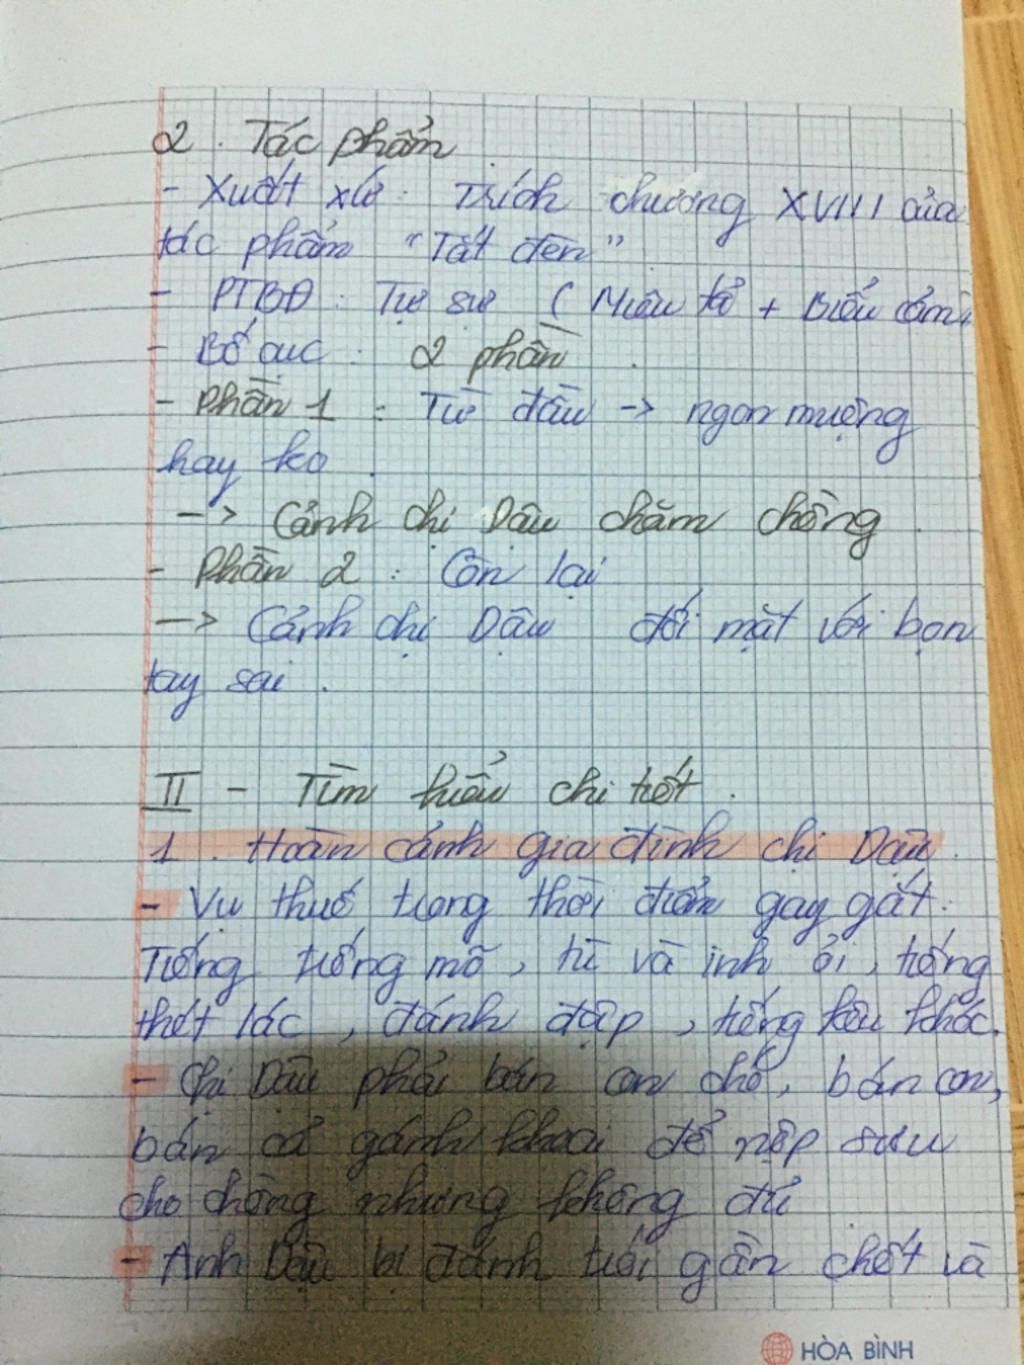 2. Tác phẩm
- Xuất xứ: Trích chương XVIII của
tác phẩm "Tắt đèn"
- PTBĐ: Tự sự (Miêu tả + Biểu cảm)
- Bố cục: 2 phần.
- Phần 1: Từ đầu -> ngon miệng
hay ko.
-> Cảnh chị Dậu chăm chồng.
- Phần 2: Còn lại
-> Cảnh chị Dậu đối mặt với bọn
tay sai.
II - Tìm hiểu chi tiết.
1. Hoàn cảnh gia đình chị Dậu.
- Vụ thuế trong thời điểm gay gắt.
Tiếng tiếng mõ, tù và inh ỏi, tiếng
thét lác, đánh đập, tiếng kêu khóc.
- Chị Dậu phải bán con chó, bán con,
bán cả gánh khoai để nộp sưu
cho chồng nhưng không đủ
- Anh Dậu bị đánh trói gần chết và
HÒA BÌNH